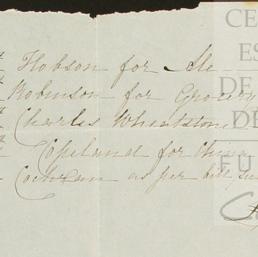 Hobson for Ale
Robinson for Grocery
Charles Wheatstone
Copeland for China
Cochran as per bill,
CE
ES
DE
DE
FU